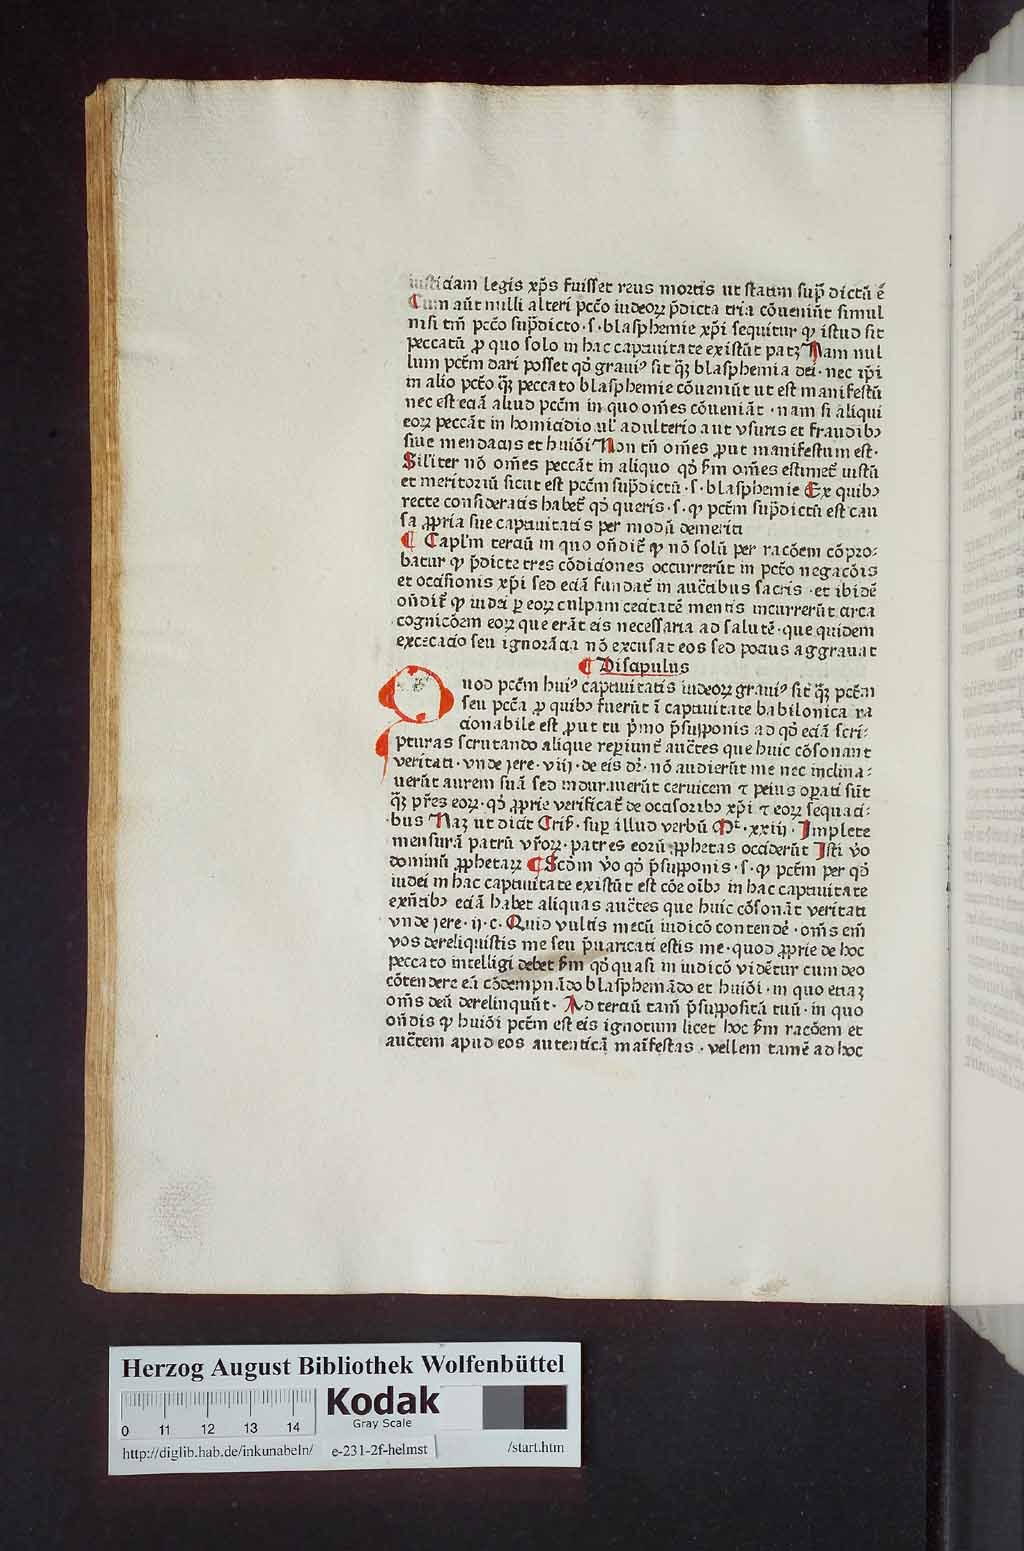 iusticiam legis xp̄s fuisset reus mortis ut statim sup̄ dictū ē
Cum aūt nulli alteri pctō iudeoꝝ p̄dicta tria cōueniūt simul
nisi tm̄ pctō sup̄dicto · s · blasphemie xp̄i sequitur ꝙ istud sit
peccatū ꝓ quo solo in hac captiuitate existūt patꝫ Nam nul
lum pctm̄ dari posset qd̓ grauiꝰ sit q̄ꝫ blasphemia dei · nec ip̄i
in alio pctō q̄ꝫ peccato blasphemie cōueniūt ut est manifestū
nec est eciā aliud pctm̄ in quo om̄es cōueniāt · nam si aliqui
eoꝝ peccāt in homicidio ul̓ adulterio aut vsuris et fraudibꝫ
siue mendacijs et huiōi Non tn̄ om̄es ꝓut manifestum est ·
Sil̓iter nō om̄es peccāt in aliquo qd̓ sm̄ om̄es estimet̄ iustū
et meritoriū sicut est pctm̄ sup̄dictū · s · blasphemie Ex quibꝫ
recte consideratis habet̄ qd̓ queris · s · ꝙ pctm̄ sup̄dictū est cau
sa ꝓpria sue captiuitatis per modū demeriti
¶ Capl̓m terciū in quo on̄dit̄ ꝙ nō solū per racōem cōpro-
batur ꝙ p̄dicte tres cōdiciones occurrerūt in pctō negacōis
et occisionis xp̄i sed eciā fundat̄ in auct̄ibus sacris · et ibidē
on̄dit̄ ꝙ iudei ꝑ eoꝝ culpam cecitatē mentis incurrerūt circa
cognicōem eoꝝ que erāt eis necessaria ad salutē · que quidem
excecacio seu ignorācia nō excusat eos sed pocius aggrauat
¶ Discipulus
Quod pctm̄ huiꝰ captiuitatis iudeoꝝ grauiꝰ sit q̄ꝫ pctm̄
seu pctā ꝓ quibꝫ fuerūt ī captiuitate babilonica ra
cionabile est ꝓut tu p̓mo p̄supponis ad qd̓ eciā scri-
pturas scrutando alique reperiunt̄ auct̄es que huic cōsonant
veritati · vnde jere · viij · de eis dr̄ · nō audierūt me nec inclina-
uerūt aurem suā sed indurauerūt ceruicem ⁊ peius oꝑati sūt
q̄ꝫ pr̄es eoꝝ · qd̓ ꝓprie verificat̄ de occisoribꝫ xp̄i ⁊ eoꝝ sequaci-
bus Naꝫ ut dicit Cris̄ · suꝑ illud verbū Mᵗ · xxiij · Implete
mensurā patrū vr̄oꝝ · patres eorū ꝓphetas occiderūt Isti v̓o
dominū ꝓphetaꝝ ¶ Scd̓m v̓o qd̓ p̄supponis · s · ꝙ pctm̄ per qd̓
iudei in hac captiuitate existūt est cōe oībꝫ in hac captiuitate
exn̄tibꝫ eciā habet aliquas auct̄es que huic cōsonāt veritati
vnde jere · ij · c · Quid vultis mecū iudicō contende̓ · om̄s em̄
vos dereliquistis me seu p̄uaricati estis me · quod ꝓprie de hoc
peccato intelligi debet sm̄ qd̓ quasi in iudicō vidētur cum deo
cōtendere eū cōdempnādo blasphemādo et huiōi · in quo etiaꝫ
om̄s deū derelinquūt · Ad terciū tam̄ p̄suppositū tuū · in quo
on̄dis ꝙ huiōi pctm̄ est eis ignotum licet hoc sm̄ racōem et
auct̄em apud eos autenticā maīfestas · vellem tamē ad hoc
Herzog August Bibliothek Wolfenbüttel
0 11 12 13 14
Kodak
Gray Scale
http://diglib.hab.de/inkunabeln/ e-231-2f-helmst /start.htm